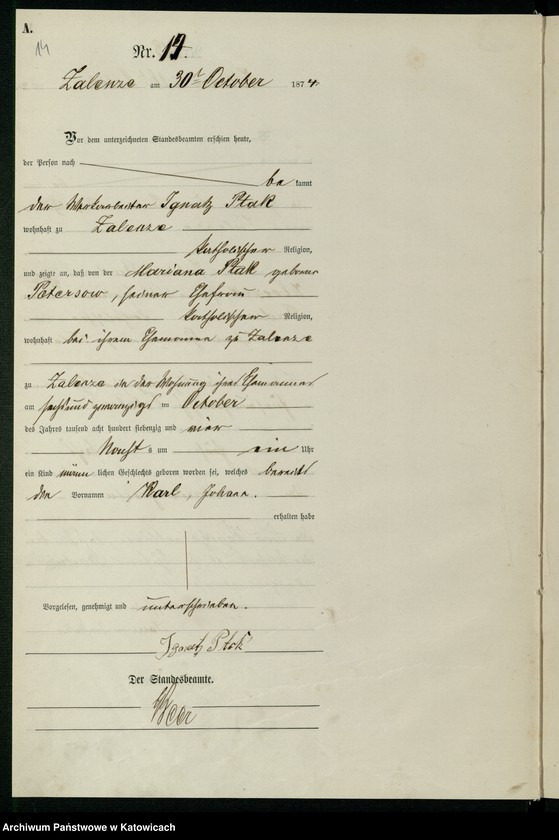 A.
14
Nr. 14.
Zalenze am 30t October 1874.
Vor dem unterzeichneten Standesbeamten erschien heute,
der Person nach
be kannt
der Ignatz Ptak
wohnhaft zu Zalenze
katholischer Religion,
und zeigte an, daß von der Mariana Ptak geborene
Petersow, seiner Ehefrau
katholischer Religion,
wohnhaft bei ihrem Ehemanne zu Zalenze
zu Zalenze in der Wohnung ihres Ehemannes
am sechsundzwanzigst en October
des Jahres tausend acht hundert siebenzig und vier
Nacht s um ein Uhr
ein Kind männ lichen Geschlechts geboren worden sei, welches bereits
den Vornamen Karl, Johann.
erhalten habe
Vorgelesen, genehmigt und unterschrieben.
Ignatz Ptak
Der Standesbeamte.
Archiwum Państwowe w Katowicach